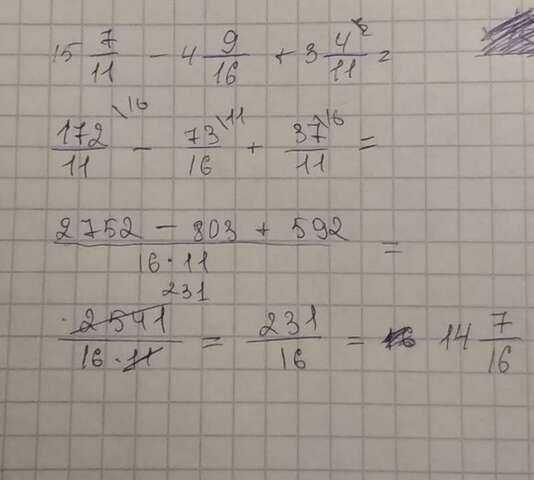 15 7/11 - 4 9/16 + 3 4/11 =
172/11 \16 - 73/16 \11 + 37/11 \16 =
(2752 - 803 + 592)/(16 · 11) =
231
2541/(16 · 11) = 231/16 = 14 7/16